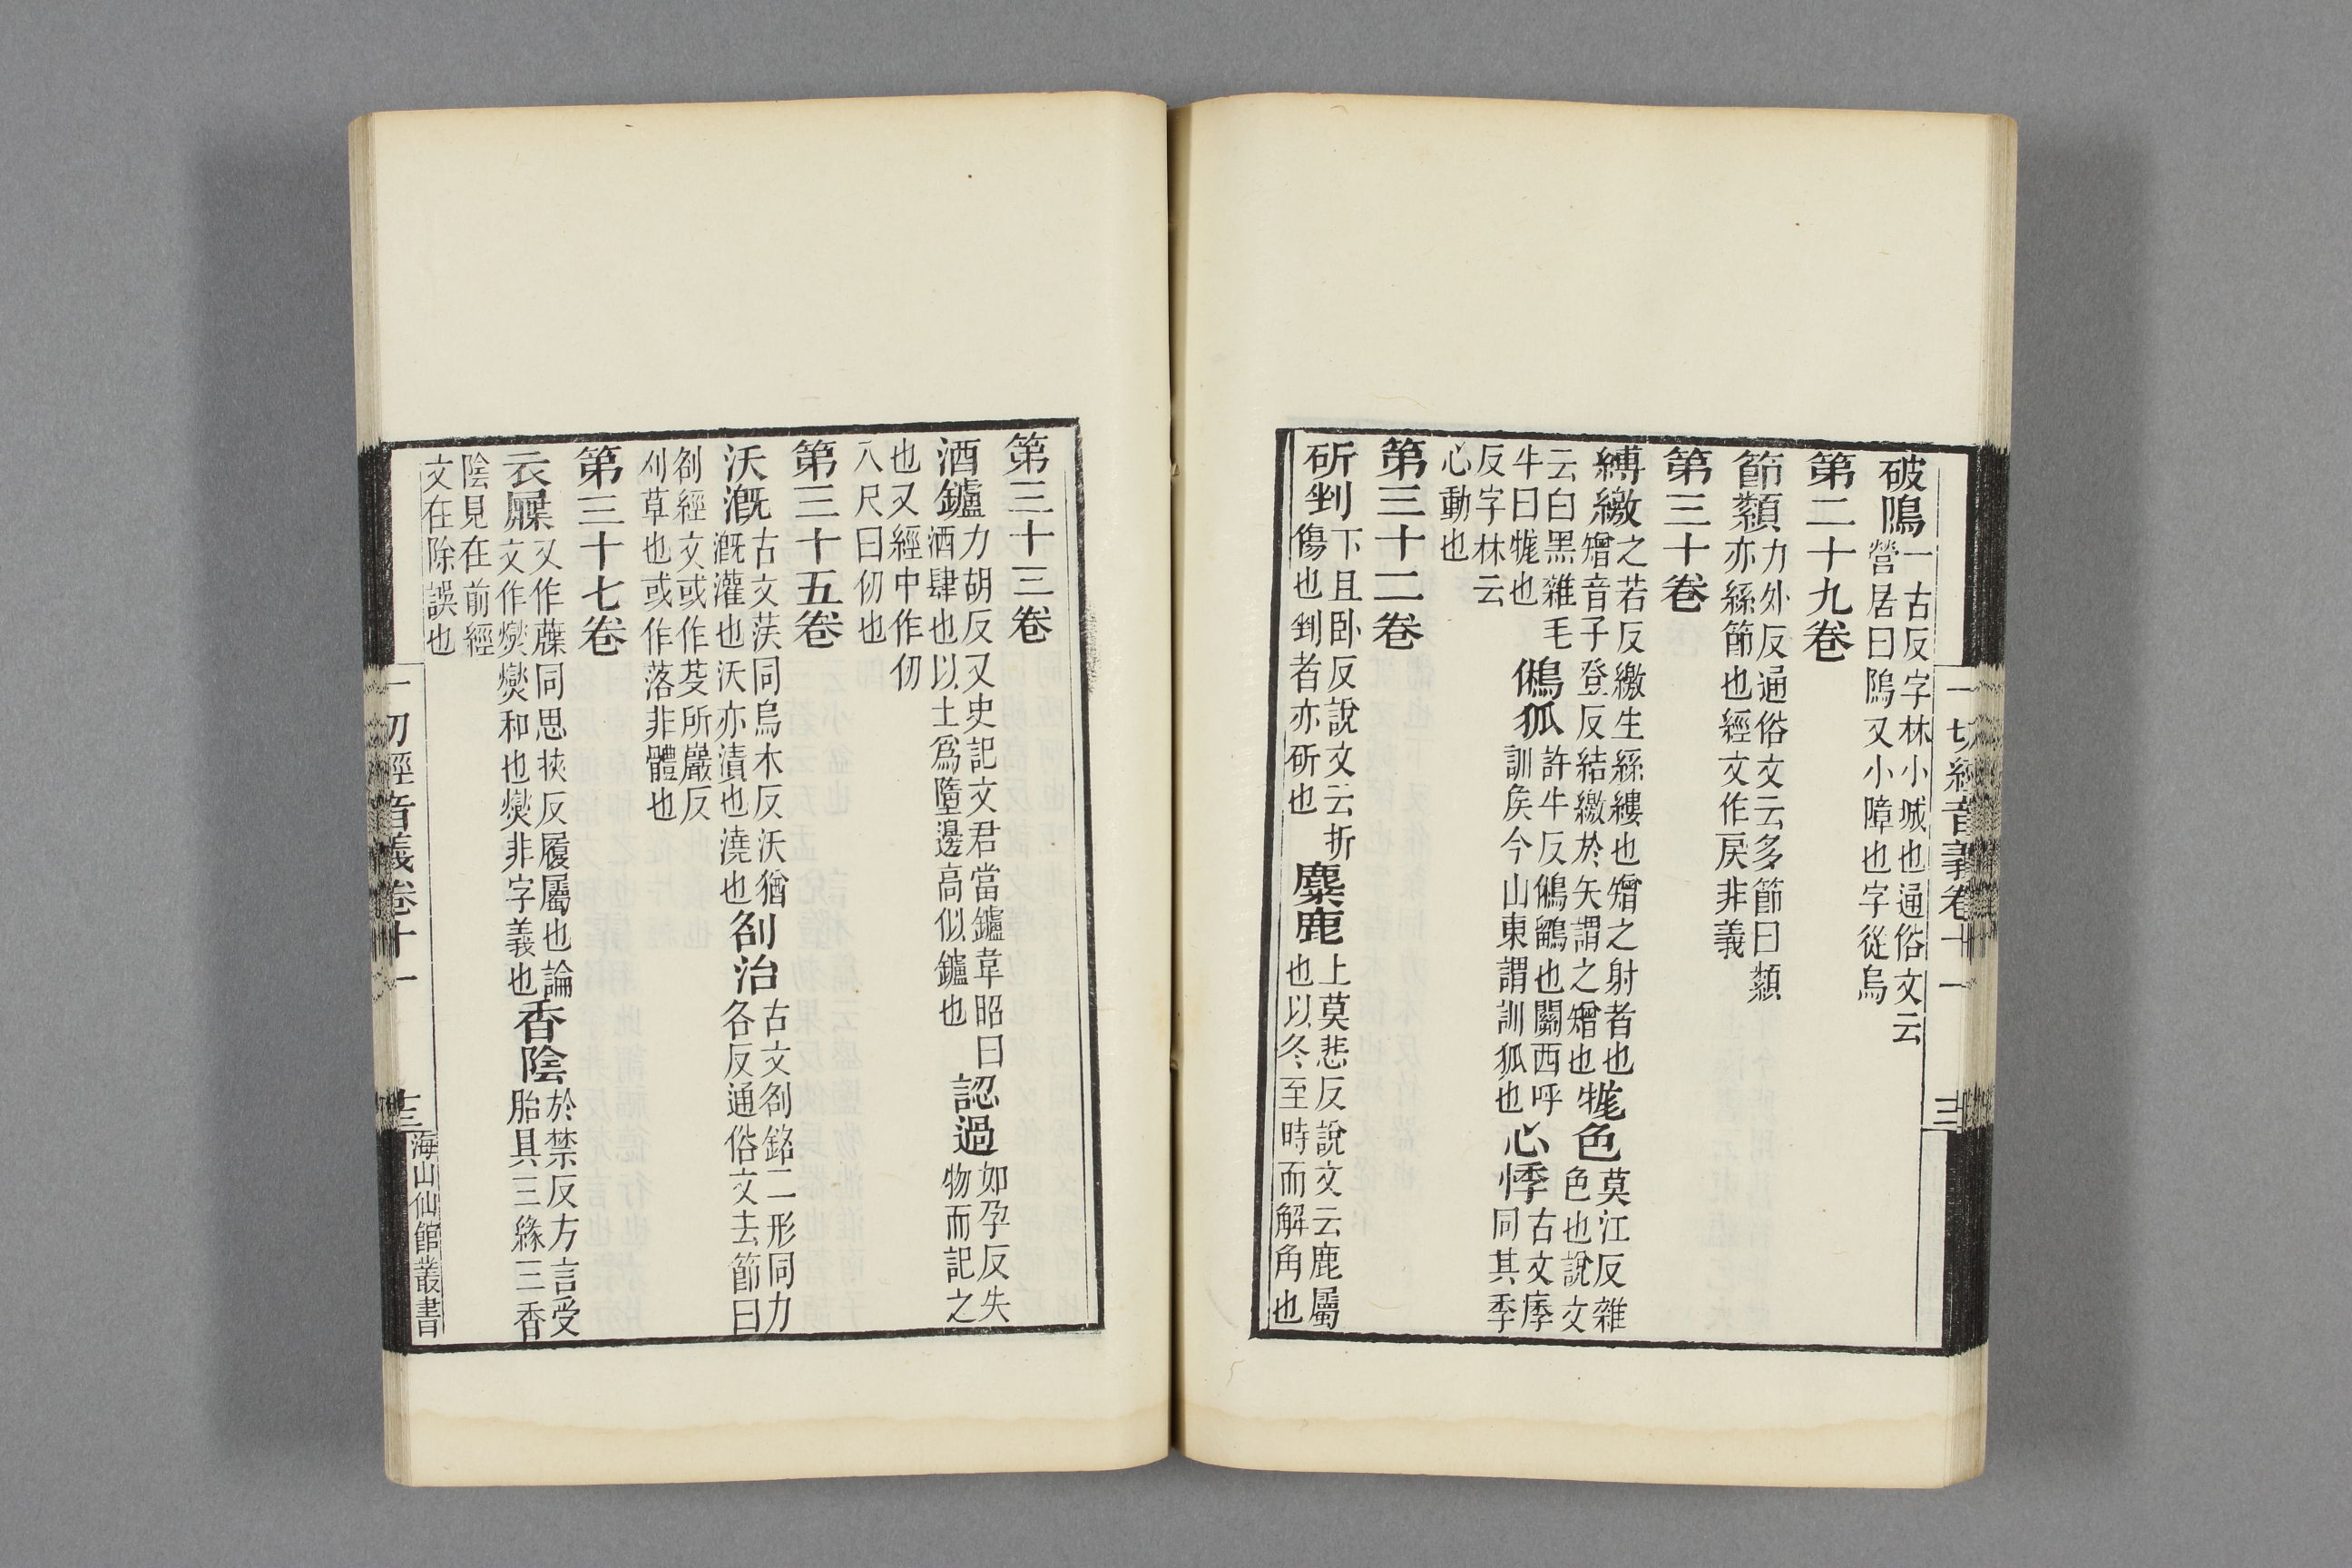 一切經音義卷十一
破隝一古反字林小城也通俗文云營居曰隝又小障也字從烏
第二十九卷
節纇力外反通俗文云多節曰纇亦絲節也經文作戾非義
第三十卷
縛繳之若反繳生絲縷也矰之射者也矰音子登反結繳於矢謂之矰也牻色莫江反雜色也說文
云白黑雜毛牛曰牻也鵂狐許牛反鵂鶹也關西呼訓侯今山東謂訓狐也心悸古文痵同其季
反字林云心動也
第三十二卷
斫剉下且卧反說文云折傷也剉者亦斫也麋鹿上莫悲反說文云鹿屬也以冬至時而解角也
第三十三卷
酒鑪力胡反又史記文君當鑪韋昭曰酒肆也以土爲墮邊高似鑪也認過如孕反失物而記之
也又經中作仞八尺曰仞也
第三十五卷
沃漑古文𦵮同烏木反沃猶漑灌也沃亦漬也澆也刢治古文刢銘二形同力各反通俗文去節曰
刢經文或作芟所巖反刈草也或作落非體也
第三十七卷
衣屧又作𧞤同思挾反履屬也論文作爕爕和也爕非字義也香陰於禁反方言受胎具三緣三香
陰見在前經文在除誤也
一切經音義卷十一
十三
海山仙館叢書